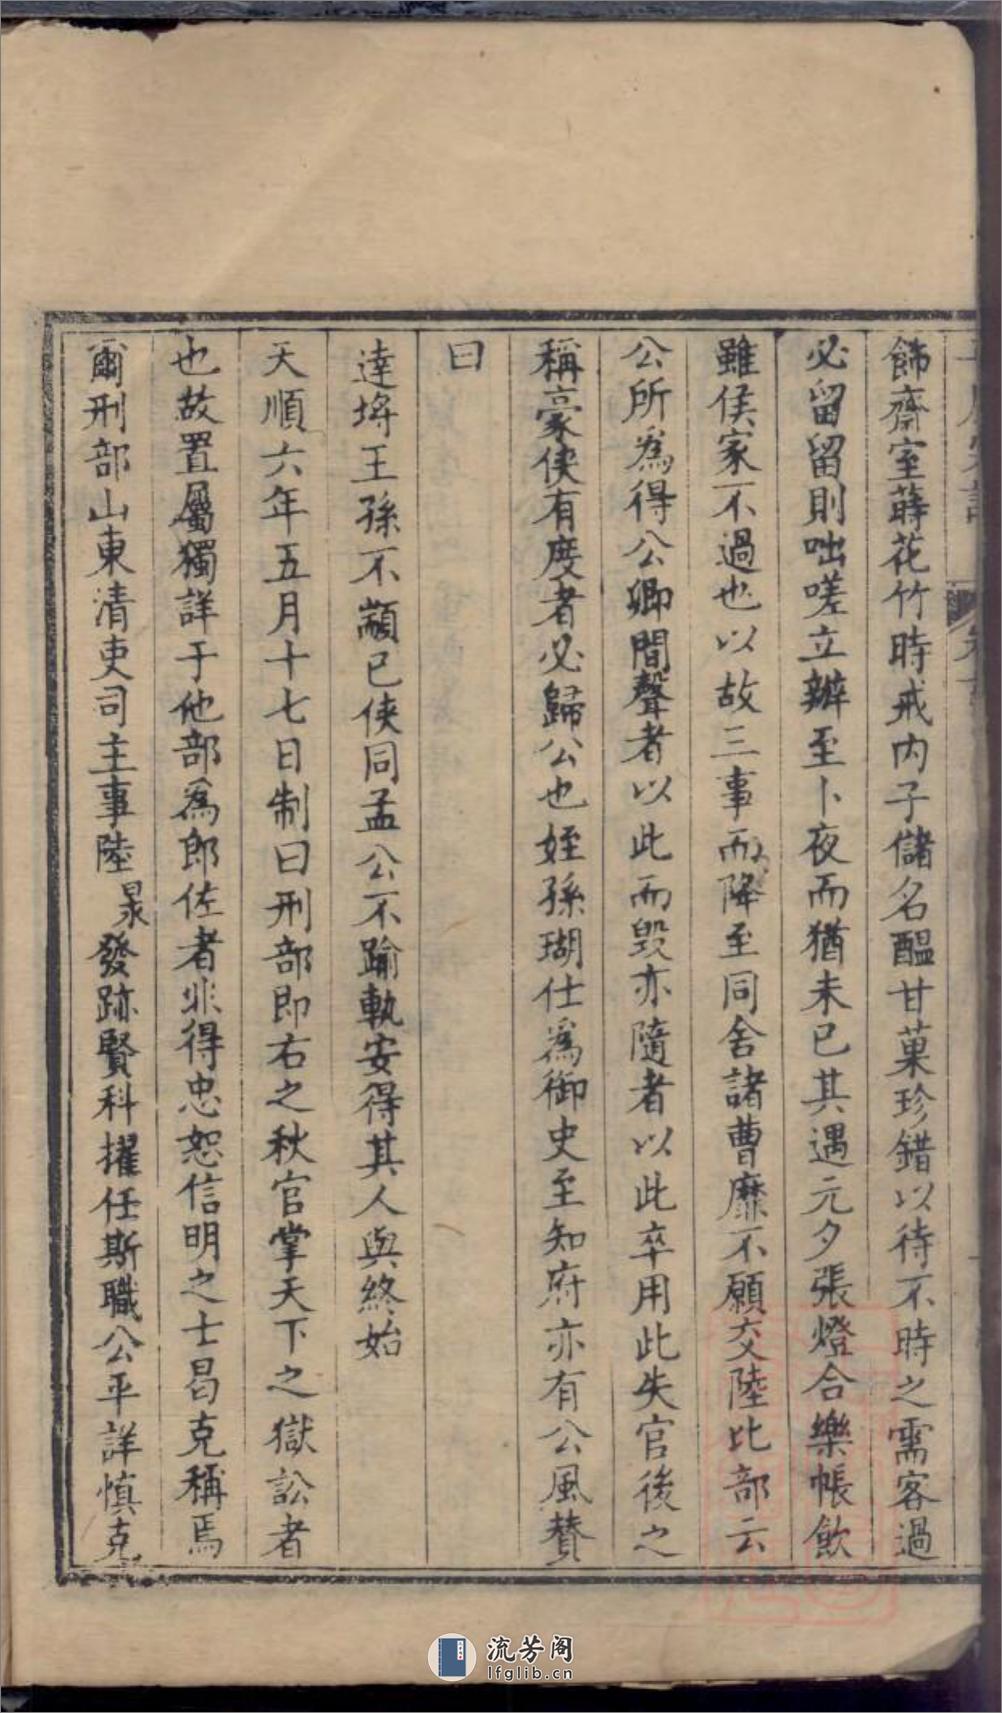 飾齋室蒔花竹時戒内子儲名醖甘菓珍錯以待不時之需客過
必留留則咄嗟立辦至卜夜而猶未已其遇元夕張燈合樂帳飲
雖侯家不過也以故三事而降至同舍諸曹靡不願交陸比部云
公所為得公卿間聲者以此而毀亦隨者以此卒用此失官後之
稱豪俠有度者必歸公也姪孫瑚仕為御史至知府亦有公風贊
曰
達埓王孫不顓已俠同孟公不踰軌安得其人與終始
天順六年五月十七日制曰刑部即右之秋官掌天下之獄訟者
也故置屬獨詳于他部為郎佐者非得忠恕信明之士曷克稱焉
爾刑部山東清吏司主事陸㫤發跡賢科擢任斯職公平詳慎克
流芳阁
lfglib.cn